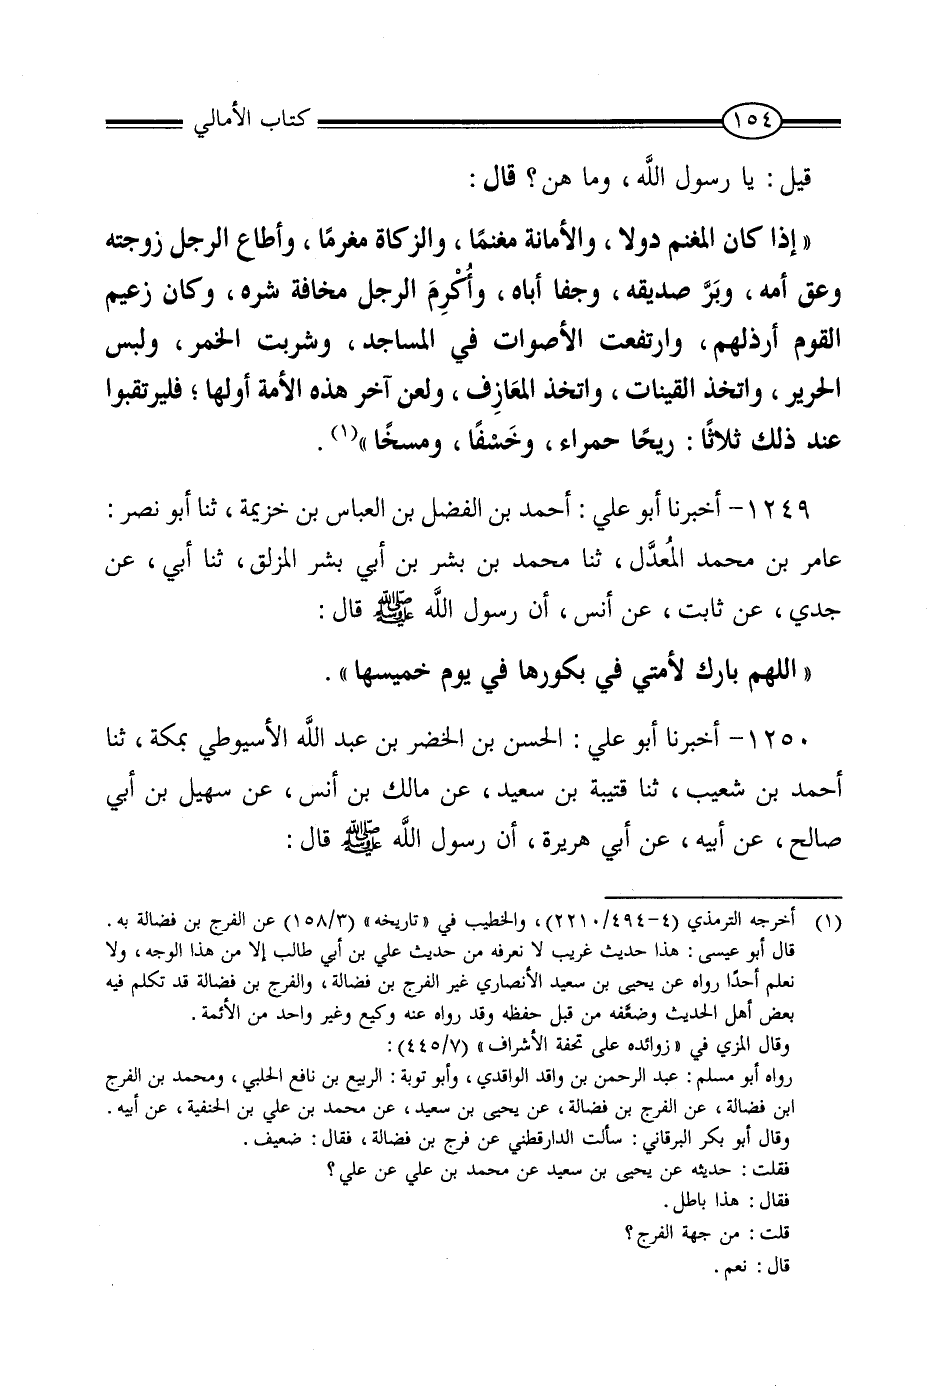 ١٥٤ كتاب الأمالي
قيل : يا رسول اللَّه ، وما هن ؟ قال :
« إذا كان المغنم دولا ، والأمانة مغنمًا ، والزكاة مغرمًا ، وأطاع الرجل زوجته
وعق أمه ، وبَرَّ صديقه ، وجفا أباه ، وأُكْرِمَ الرجل مخافة شره ، وكان زعيم
القوم أرذلهم ، وارتفعت الأصوات في المساجد ، وشربت الخمر ، ولبس
الحرير ، واتخذ القينات ، واتخذ المعَازِف ، ولعن آخر هذه الأمة أولها ؛ فليرتقبوا
عند ذلك ثلاثًا : ريحًا حمراء ، وخَسْفًا ، ومسخًا »(١) .
١٢٤٩- أخبرنا أبو علي : أحمد بن الفضل بن العباس بن خزيمة ، ثنا أبو نصر :
عامر بن محمد المُعدَّل ، ثنا محمد بن بشر بن أبي بشر المزلق ، ثنا أبي ، عن
جدي ، عن ثابت ، عن أنس ، أن رسول اللَّه ﷺ قال :
« اللهم بارك لأمتي في بكورها في يوم خميسها » .
١٢٥٠- أخبرنا أبو علي : الحسن بن الخضر بن عبد اللَّه الأسيوطي بمكة ، ثنا
أحمد بن شعيب ، ثنا قتيبة بن سعيد ، عن مالك بن أنس ، عن سهيل بن أبي
صالح ، عن أبيه ، عن أبي هريرة ، أن رسول اللَّه ﷺ قال :
(١) أخرجه الترمذي (٤-٢٢١٠/٤٩٤) ، والخطيب في « تاريخه » (١٥٨/٣) عن الفرج بن فضالة به .
قال أبو عيسى : هذا حديث غريب لا نعرفه من حديث علي بن أبي طالب إلا من هذا الوجه ، ولا
نعلم أحدًا رواه عن يحيى بن سعيد الأنصاري غير الفرج بن فضالة ، والفرج بن فضالة قد تكلم فيه
بعض أهل الحديث وضعَّفه من قبل حفظه وقد رواه عنه وكيع وغير واحد من الأئمة .
وقال المزي في « زوائده على تحفة الأشراف » (٤٤٥/٧) :
رواه أبو مسلم : عبد الرحمن بن واقد الواقدي ، وأبو توبة : الربيع بن نافع الحلبي ، ومحمد بن الفرج
ابن فضالة ، عن الفرج بن فضالة ، عن يحيى بن سعيد ، عن محمد بن علي بن الحنفية ، عن أبيه .
وقال أبو بكر البرقاني : سألت الدارقطني عن فرج بن فضالة ، فقال : ضعيف .
فقلت : حديثه عن يحيى بن سعيد عن محمد بن علي عن علي ؟
فقال : هذا باطل .
قلت : من جهة الفرج ؟
قال : نعم .